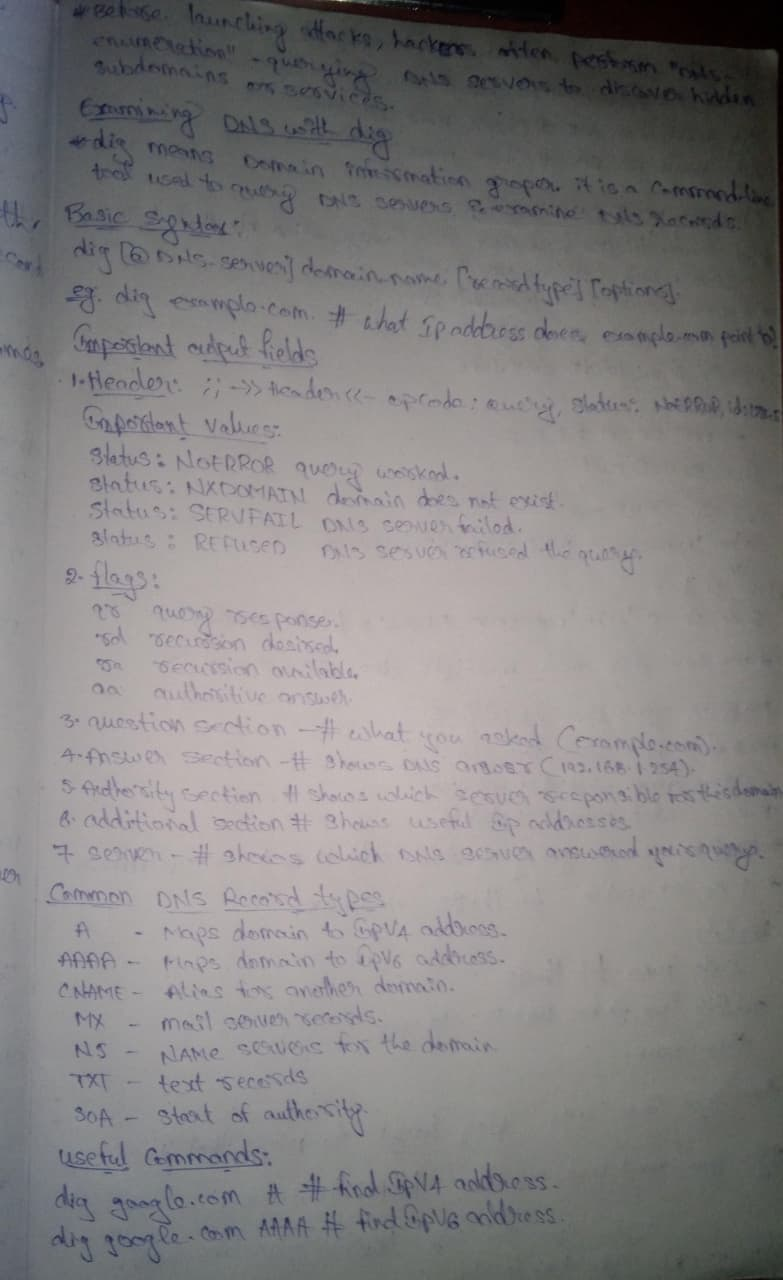 * Before launching attacks, hackers often perform "DNS-
enumeration" - querying DNS servers to discover hidden
subdomains or services.
Examining DNS with dig
* dig means Domain information groper. it is a Command-line
tool used to query DNS servers & examine DNS records.
Basic Syntax:
dig [@ DNS-server] domain name. [record type] [options].
eg. dig example.com. # what Ip address does example.com point to?
Important output fields
1. Header: ;; ->> Header <<- opcode: query, status: NOERROR, id:
Important values:
Status: NOERROR query worked.
Status: NXDOMAIN domain does not exist.
Status: SERVFAIL DNS server failed.
Status: REFUSED DNS server refused the query.
2. flags:
qr query response.
rd recursion desired.
ra recursion available.
aa authoritive answer.
3. question section - # what you asked (example.com).
4. Answer section - # shows DNS answer (192.168.1.254).
5. Authority section # shows which server responsible for this domain
6. additional section # shows useful Ip addresses
7 server - # shows which DNS server answered your query.
Common DNS Record types
A - Maps domain to IpV4 address.
AAAA - Maps domain to IpV6 address.
CNAME - Alias for another domain.
MX - mail server records.
NS - NAME servers for the domain
TXT - text records
SOA - Start of authority.
useful Commands:
dig google.com A # find IpV4 address.
dig google.com AAAA # find IpV6 address.